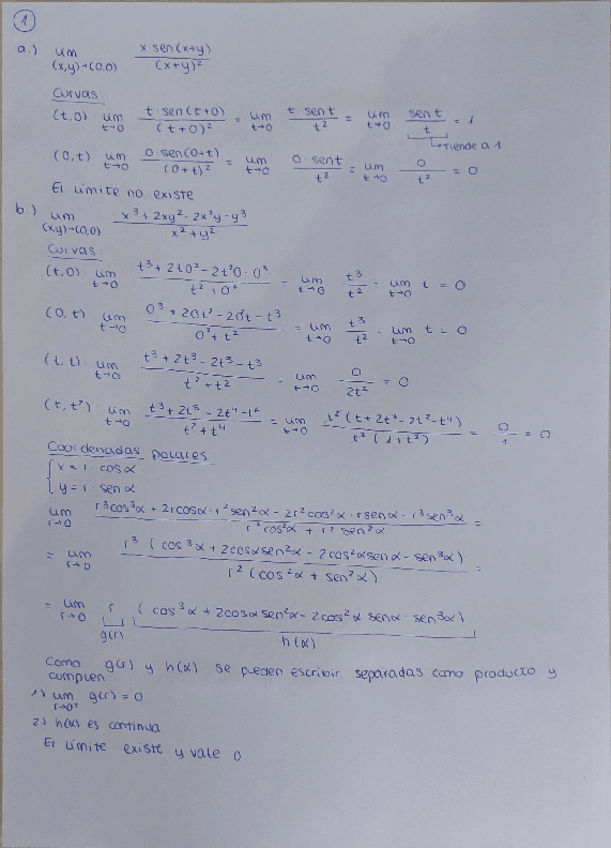 1
a.) lim (x,y)→(0,0) x·sen(x+y) / (x+y)²
Curvas:
(t,0) lim t→0 t·sen(t+0) / (t+0)² = lim t→0 t·sent / t² = lim t→0 sent / t = 1
tiende a 1
(0,t) lim t→0 0·sen(0+t) / (0+t)² = lim t→0 0·sent / t² = lim t→0 0 / t² = 0
El límite no existe
b.) lim (x,y)→(0,0) x³+2xy²-2x²y-y³ / x²+y²
Curvas:
(t,0) lim t→0 t³+2t0²-2t²0-0³ / t²+0² = lim t→0 t³ / t² = lim t→0 t = 0
(0,t) lim t→0 0³+20t²-20t-t³ / 0²+t² = lim t→0 t³ / t² = lim t→0 t = 0
(t,t) lim t→0 t³+2t³-2t³-t³ / t²+t² = lim t→0 0 / 2t² = 0
(t,t²) lim t→0 t³+2t⁵-2t⁴-t⁶ / t²+t⁴ = lim t→0 t²(t+2t³-2t²-t⁴) / t²(1+t²) = 0 / 1 = 0
Coordenadas polares:
{ x = r·cosα
y = r·senα
lim r→0 r³cos³α + 2rcosα·r²sen²α - 2r²cos²α·rsenα - r³sen³α / r²cos²α + r²sen²α =
= lim r→0 r³(cos³α + 2cosαsen²α - 2cos²αsenα - sen³α) / r²(cos²α + sen²α) =
= lim r→0 r (cos³α + 2cosαsen²α - 2cos²αsenα - sen³α)
g(r) h(α)
Como g(r) y h(α) se pueden escribir separadas como producto y
cumplen:
1) lim r→0⁺ g(r) = 0
2) h(α) es continua
El límite existe y vale 0